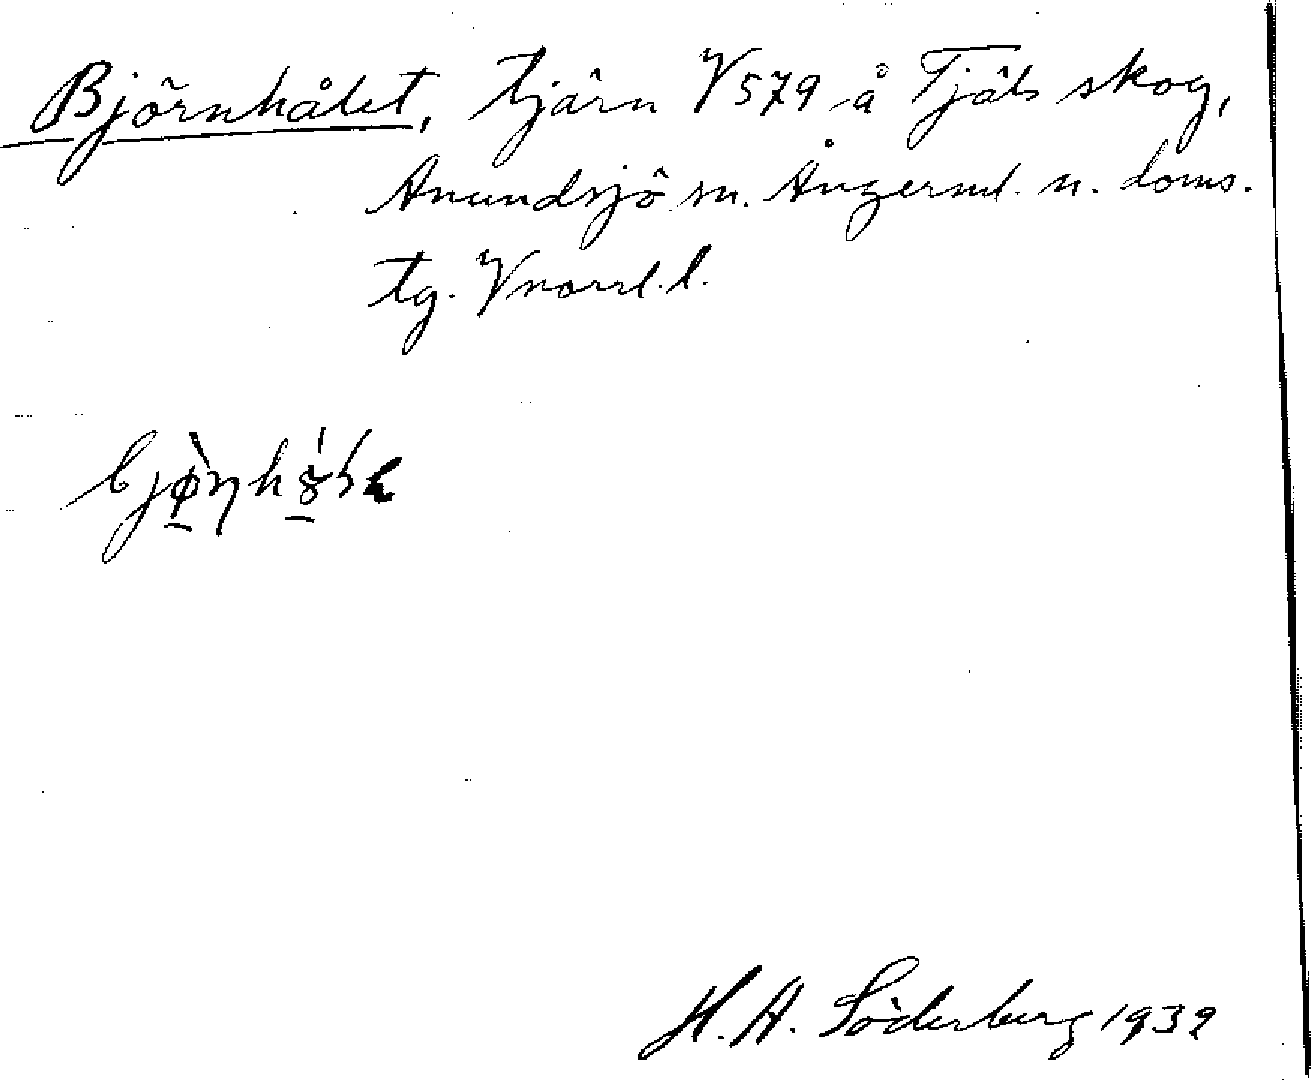 Björnhålet, tjärn V 579 å Tjäls skog,
Anundsjö sn. Ångerml. n. doms.
tg. Vnorrl. l.
H. A. Söderberg 1939